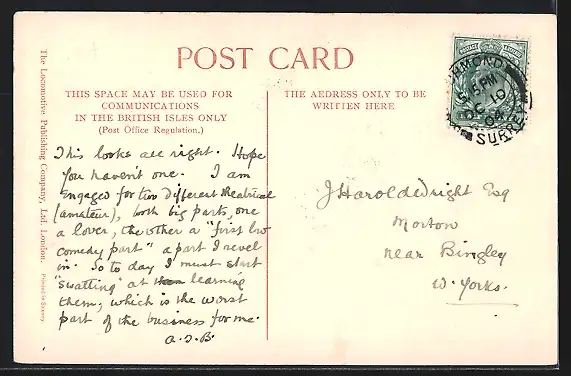 POST CARD
THIS SPACE MAY BE USED FOR
COMMUNICATIONS
IN THE BRITISH ISLES ONLY
(Post Office Regulation.)
THE ADDRESS ONLY TO BE
WRITTEN HERE
The Locomotive Publishing Company, Ltd. London.
Printed in Saxony.
This looks all right. Hope
you haven't one. I am
engaged for two different theatrical
(amateur), both big parts, one
a lover, the other a "first low
comedy part" a part I revel
in. So to day I must start
"swatting" at learning
them, which is the worst
part of the business for me.
A.J.B.
J Harold Wright Esq
Morton
near Bingley
W. Yorks.
RICHMOND
5.15 PM
DE 10
04
SURREY